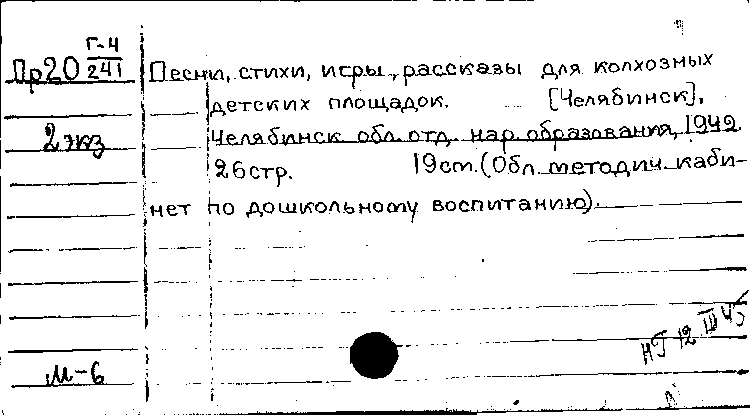 Г-4
Пр20 241
Песни, стихи, игры, рассказы для колхозных
детских площадок. [Челябинск],
2 экз
Челябинск обл. отд. нар. образования, 1942.
26 стр. 19 см. (Обл. методич. каби-
нет по дошкольному воспитанию).
НТ 12 III 45
М-6